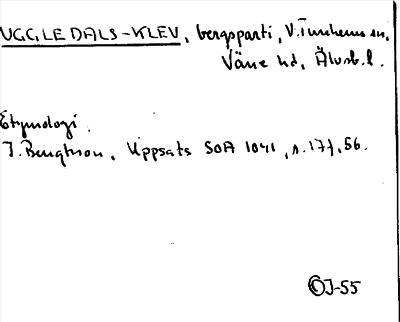 UGGLEDALS-KLEV, bergsparti, V. Tunhems sn,
Väne hd, Älvsb. l.
Etymologi.
J. Bengtsson, Uppsats SOA 1041, s. 17f, 56.
OJ-55